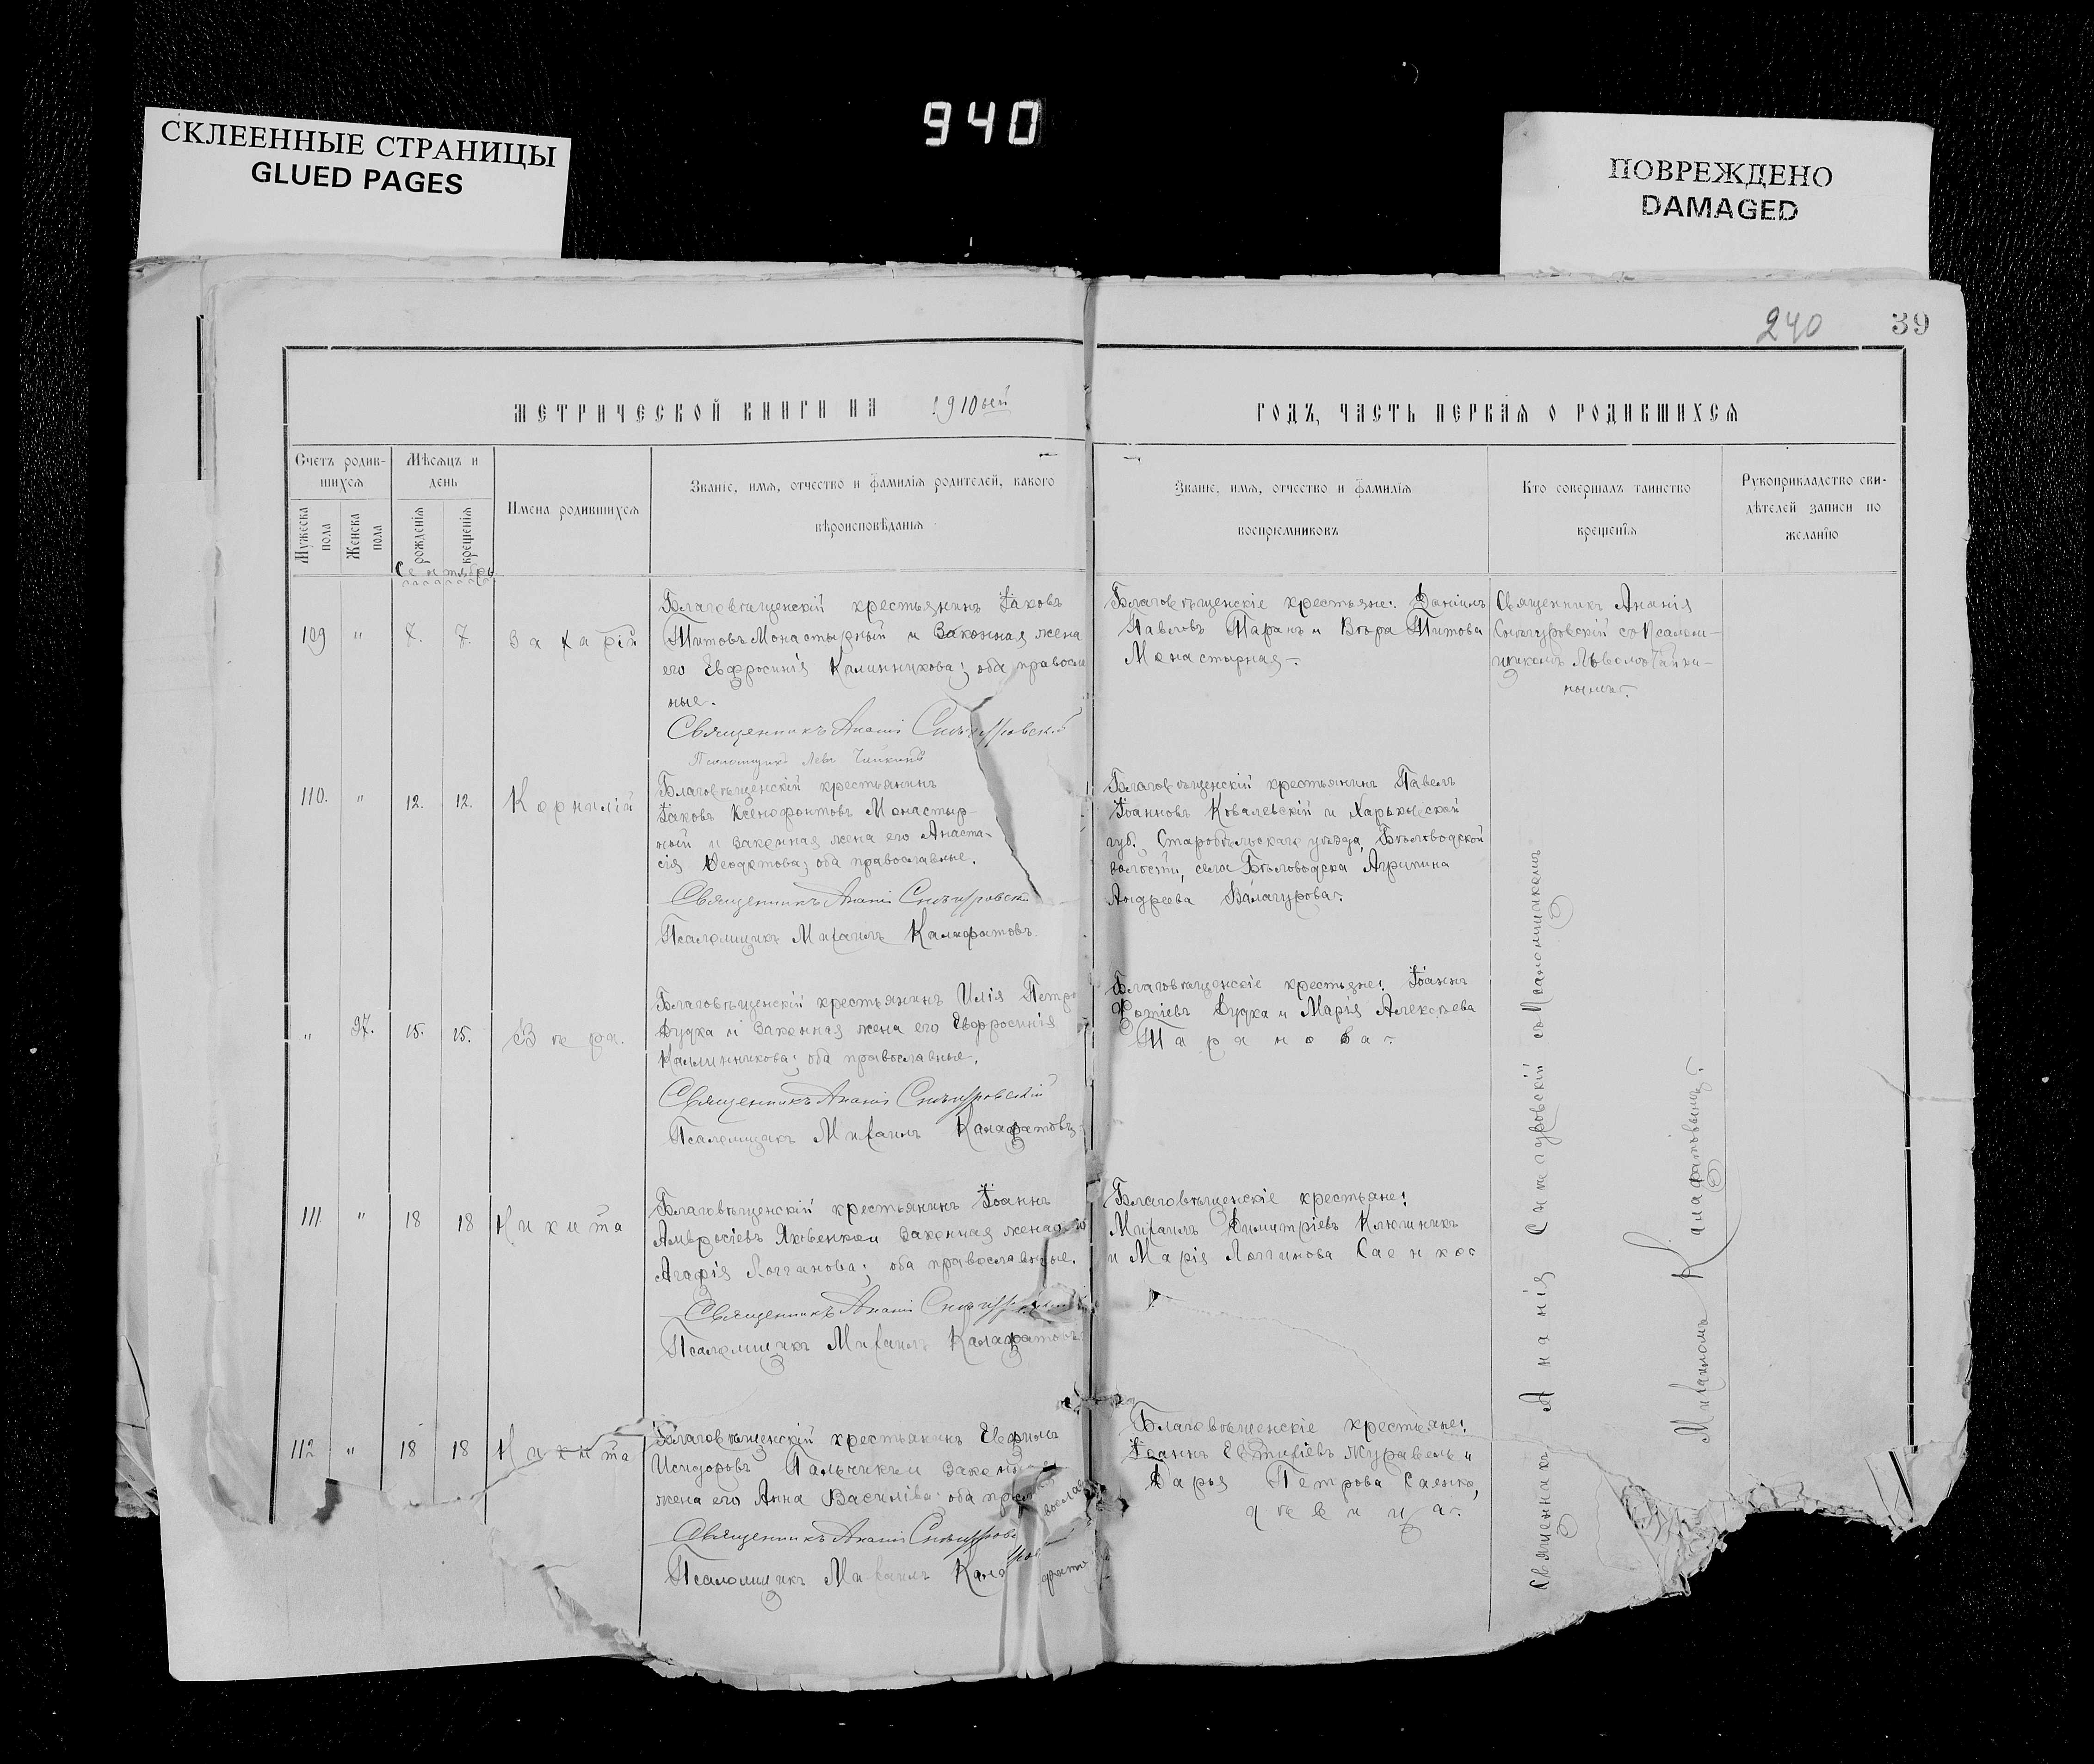 940
СКЛЕЕННЫЕ СТРАНИЦЫ
GLUED PAGES
ПОВРЕЖДЕНО
DAMAGED
240
39
МЕТРИЧЕСКОЙ КНИГИ НА 1910ый
ГОДЪ, ЧАСТЬ ПЕРВАЯ О РОДИВШИХСЯ
Счетъ родив-
шихся
Мужеска пола
Женска пола
Мѣсяцъ и
день
рожденія
крещенія
Имена родившихся
Званіе, имя, отчество и фамилія родителей, какого
вѣроисповѣданія
Званіе, имя, отчество и фамилія
воспріемниковъ
Кто совершалъ таинство
крещенія
Рукоприкладство сви-
дѣтелей записи по
желанію
Сентябрь
109 " 7. 7. Захарій
Благовѣщенскій крестьянинъ Іаковъ
Титовъ Монастырный и законная жена
его Евфросинія Калинникова; оба правосла
ные.
Священникъ Ананій Снѣгуровскій
Псаломщикъ Левъ Чайкинъ
Благовѣщенскіе крестьяне: Даніилъ
Павловъ Таранъ и Вѣра Титова
Монастырная.
Священникъ Ананія
Снѣгуровскій съ Псалом-
щикомъ Львомъ Чайки-
нымъ.
110. " 12. 12. Корнилій
Благовѣщенскій крестьянинъ
Іаковъ Ксенофонтовъ Монастыр-
ный и законная жена его Анаста-
сія Феодотова; оба православные.
Священникъ Ананій Снѣгуровскі
Псаломщикъ Михаилъ Калафатовъ.
Благовѣщенскій крестьянинъ Павелъ
Іоанновъ Ковалевскій и Харьковской
губ. Старобѣльскаго уѣзда, Бѣловодской
волости, села Бѣловодска Агрипина
Андреева Балагурова.
" 37. 15. 15. Вѣра.
Благовѣщенскій крестьянинъ Илія Петро
Дудка и законная жена его Евфросинія
Каллинникова; оба православные.
Священникъ Ананій Снѣгуровскій
Псаломщикъ Михаилъ Калафатовъ
Благовѣщенскіе крестьяне: Іоаннъ
Фотіевъ Дудка и Марія Алексѣева
Таранова.
111 " 18 18 Никита
Благовѣщенскій крестьянинъ Іоаннъ
Амвросіевъ Яковенко и законная жена его
Агафія Логгинова; оба православные.
Священникъ Ананій Снѣгуровскій
Псаломщикъ Михаилъ Калафатовъ
Благовѣщенскіе крестьяне:
Михаилъ Димитріевъ Ключникъ
и Марія Логгинова Саенко
112 " 18 18 Никита
Благовѣщенскій крестьянинъ Евфимъ
Исидоровъ Пальчикъ и законная
жена его Анна Васильева; оба правосла
Священникъ Ананій Снѣгуров
Псаломщикъ Михаилъ Калафато
Благовѣщенскіе крестьяне:
Іоаннъ Евтихіевъ Журавель и
Дарья Петрова Саенко,
дѣвица.
Священникъ Ананія Снѣгуровскій съ Псаломщикомъ
Михаиломъ Калафатовымъ.